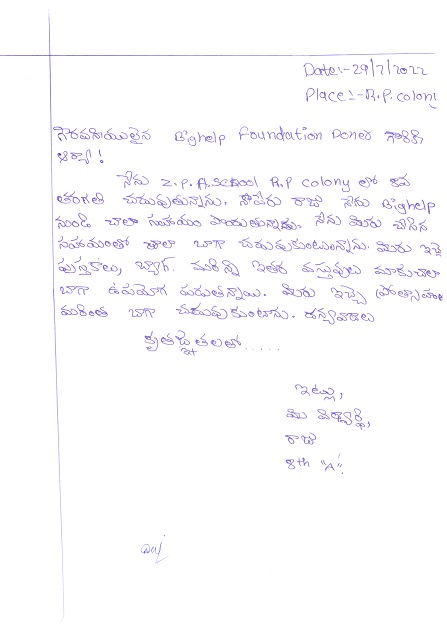 Date:-29/7/2022
Place:-R.P.colony
గౌరవనీయులైన Bighelp Foundation Doner గారికి,
ఆర్యా!
నేను Z.P.H.School R.P colony లో 8వ
తరగతి చదువుతున్నాను. నాపేరు రాజు నేను Bighelp
నుండి చాలా సహాయం పొందుతున్నాను. నేను మీరు చేసిన
సహాయంతో చాలా బాగా చదువుకుంటున్నాను. మీరు ఇచ్చే
పుస్తకాలు, బ్యాగ్. మరిన్ని ఇతర వస్తువులు మాకుచాలా
బాగా ఉపయోగ పడుతన్నాయి. మీరు ఇచ్చే
మరింత బాగా చదువుకుంటాను. ధన్యవాదాలు
కృతజ్ఞతలతో.....
ఇట్లు,
మీ విద్యార్థి,
రాజు
8th "A".